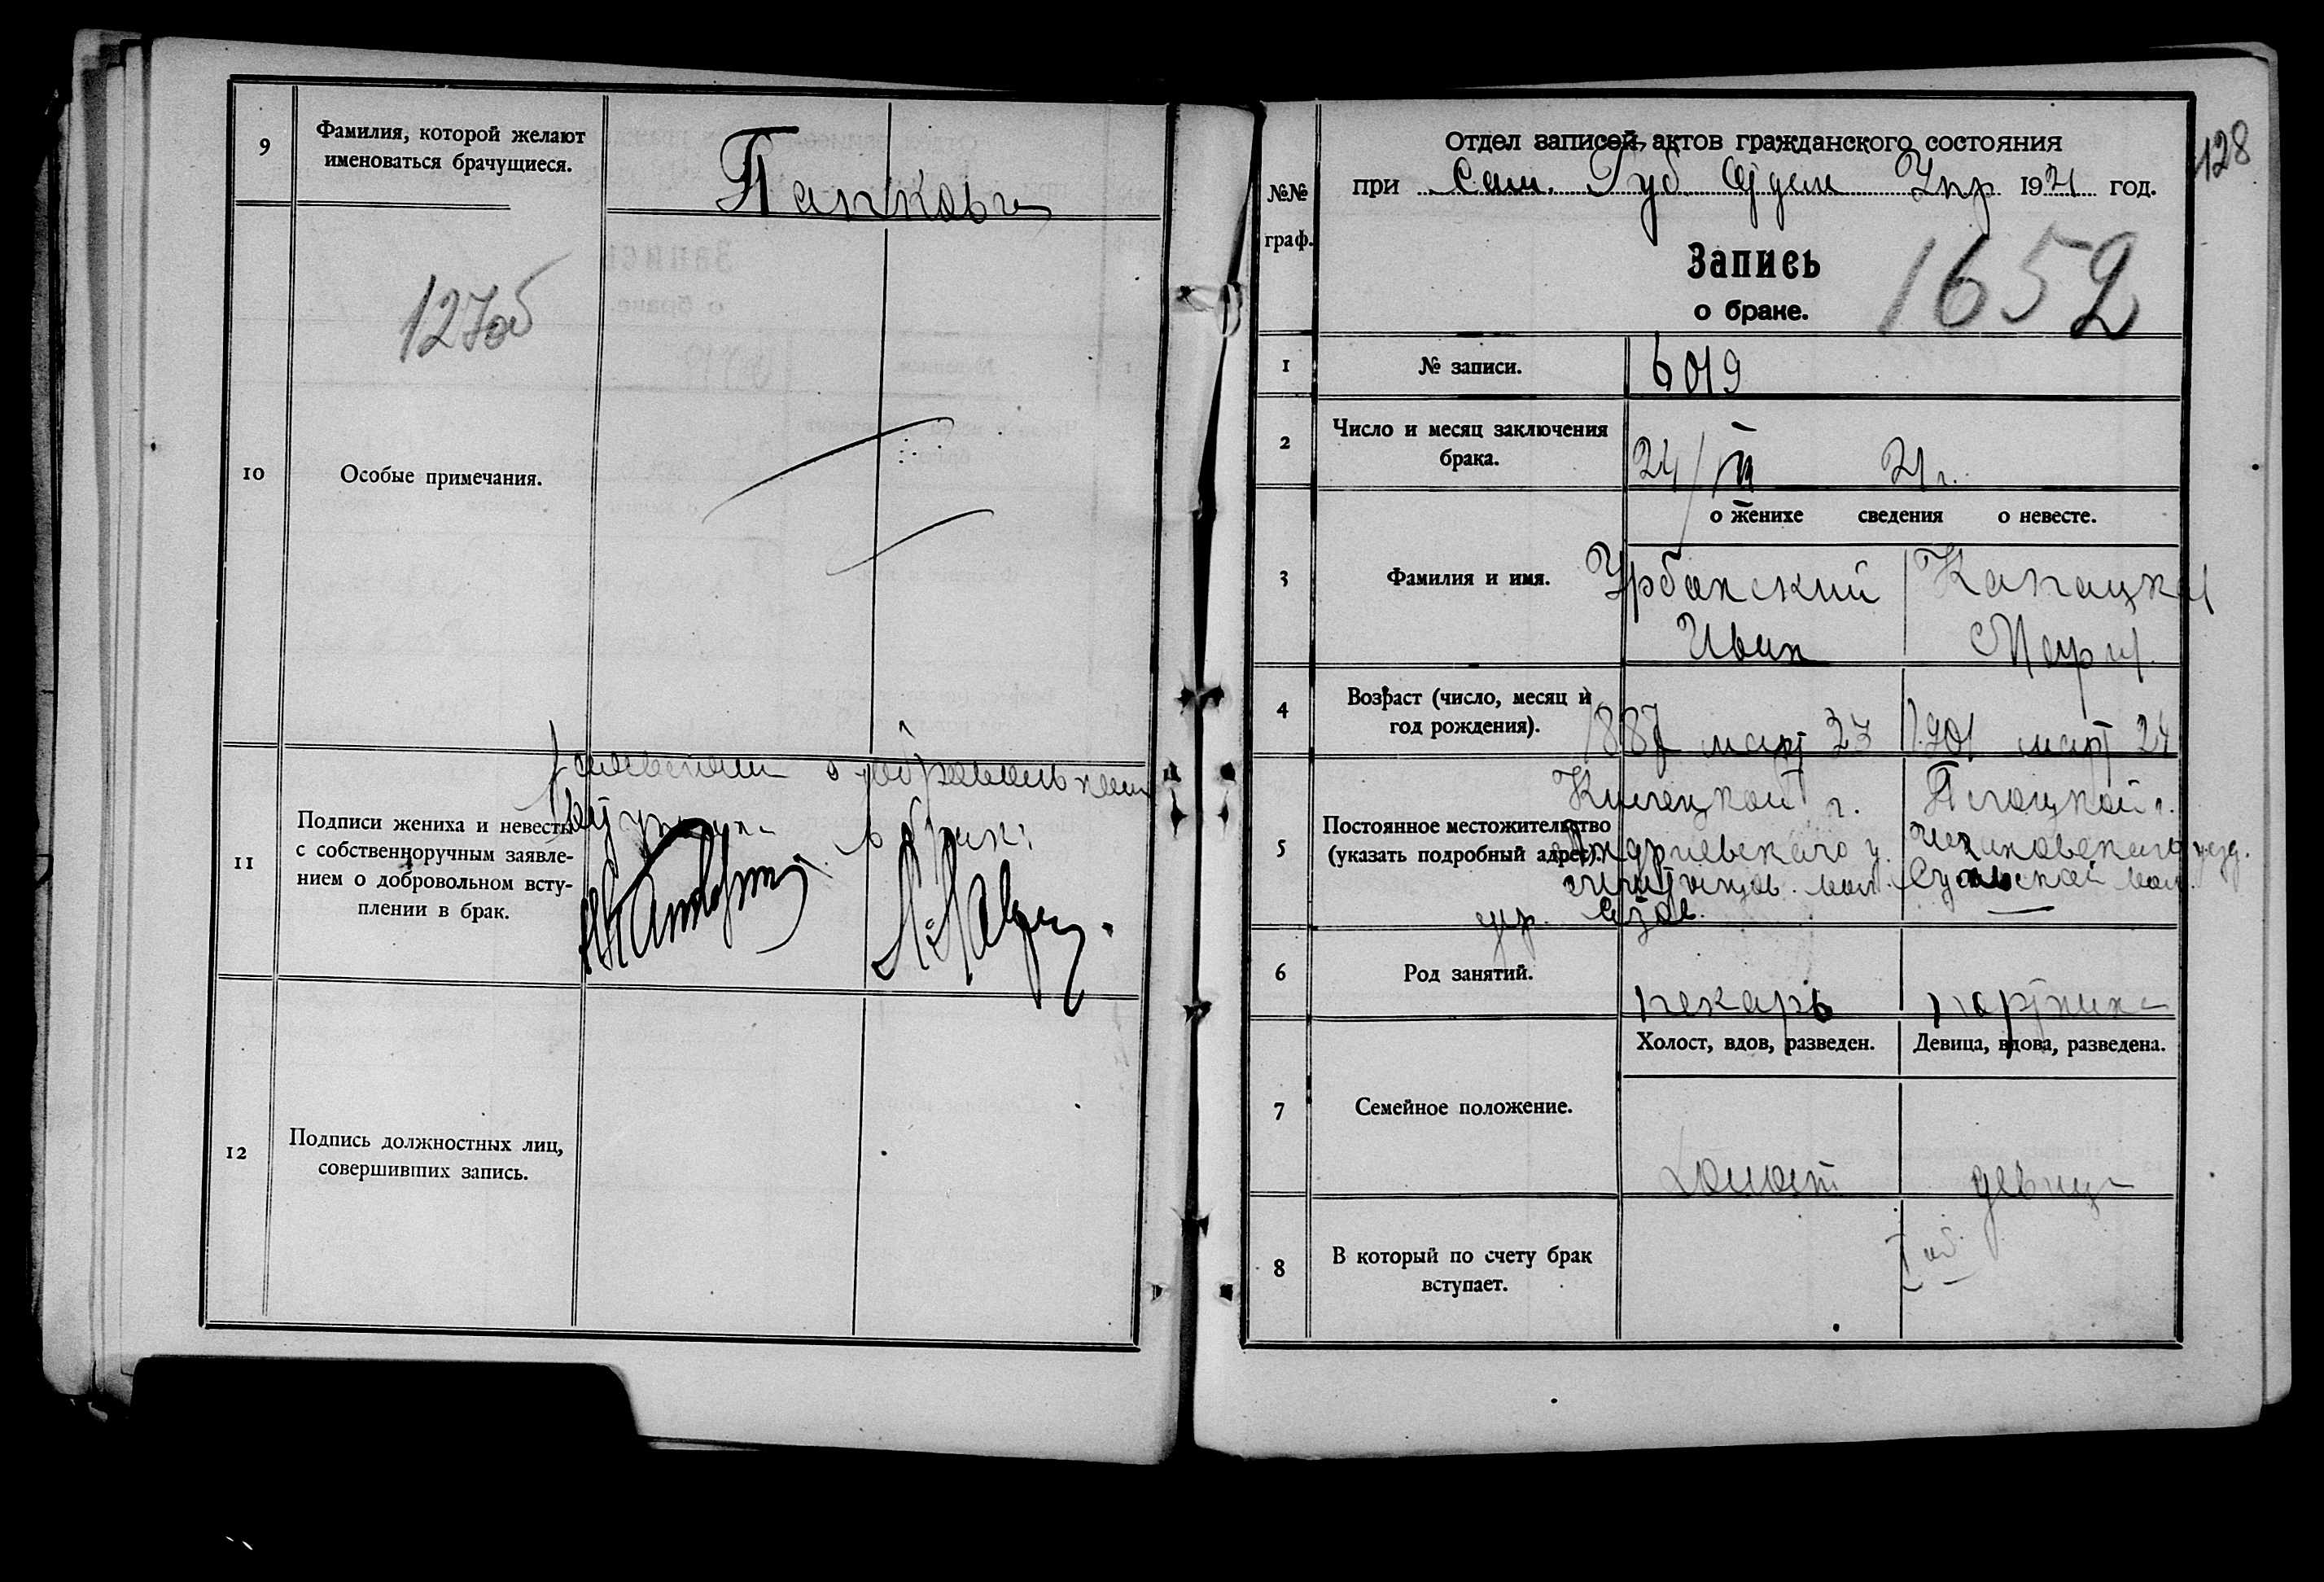 9
Фамилия, которой желают
именоваться брачущиеся.
Панковы
127об
10
Особые примечания.
11
Подписи жениха и невесты
с собственноручным заявле-
нием о добровольном всту-
плении в брак.
в брак:
12
Подпись должностных лиц,
совершивших запись.
128
Отдел записей актов гражданского состояния
при Сам. Губ Отдел Упр 1921 год.
№№
граф.
Запись
о браке.
1652
1
№ записи.
6019
2
Число и месяц заключения
брака.
24/ 21 г.
о женихе сведения о невесте.
3
Фамилия и имя.
Урбанский
Иван
Мария
4
Возраст (число, месяц и
год рождения).
1887 март 23
1901 март 24
5
Постоянное местожительство
(указать подробный адрес).
Келецкой г.
Плоцкой г.
уезд.
дер.
6
Род занятий.
пекарь
портниха
Холост, вдов, разведен.
Девица, вдова, разведена.
7
Семейное положение.
холост
девица
8
В который по счету брак
вступает.
I ой